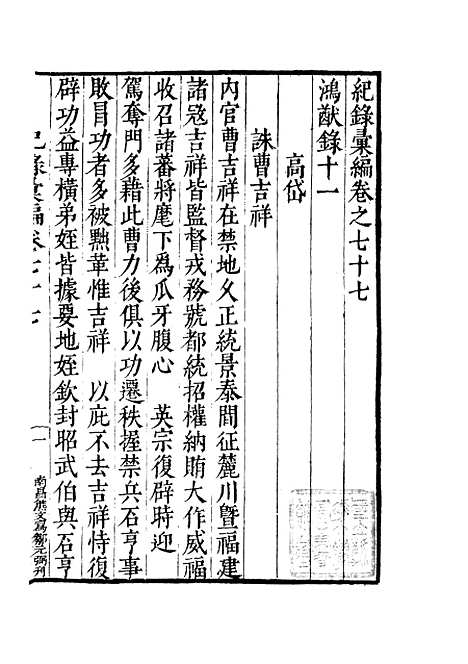 紀錄彙編卷之七十七
鴻猷錄十一
高岱
誅曹吉祥
內官曹吉祥在禁地久正統景泰間征麓川暨福建
諸寇吉祥皆監督戎務號都統招權納賄大作威福
收召諸蕃將麾下爲爪牙腹心 英宗復辟時迎
駕奪門多藉此曹力後俱以功遷秩握禁兵石亨事
敗冒功者多被黜革惟吉祥 以庇不去吉祥恃復
辟功益專橫弟姪皆據要地姪欽封昭武伯與石亨
紀錄彙編卷七十七
一